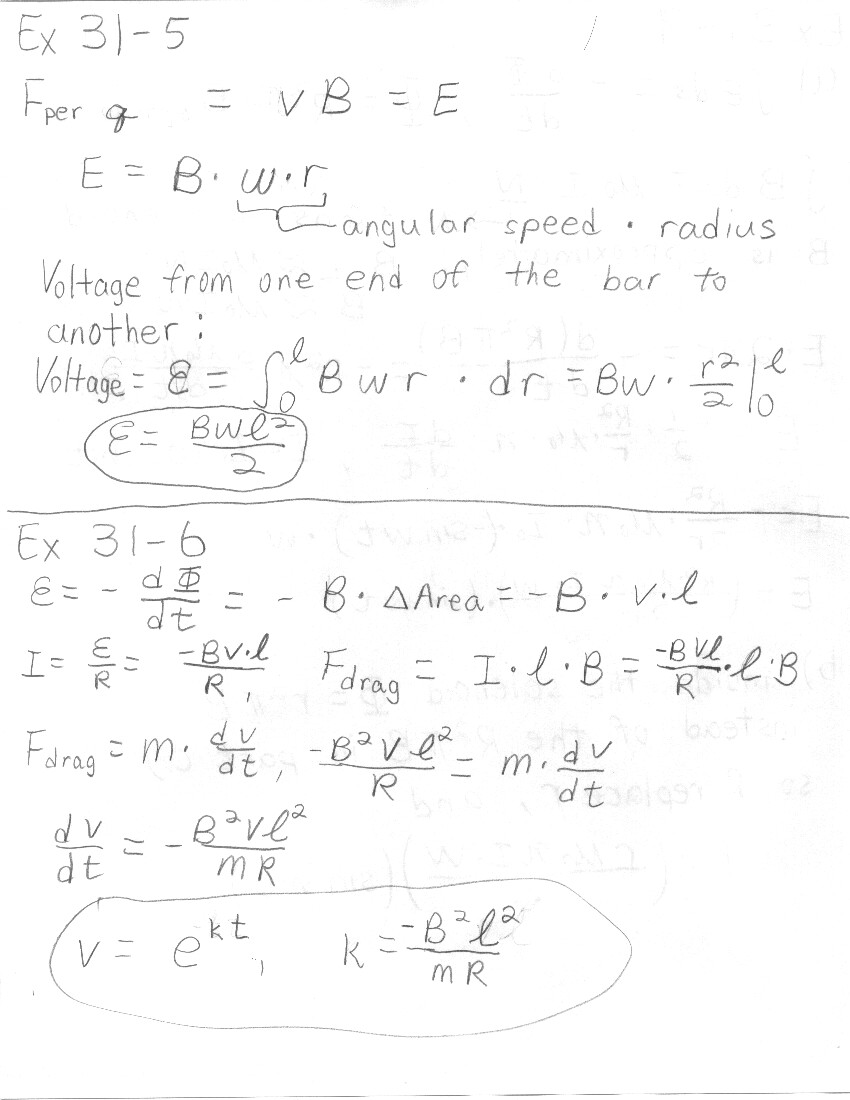 Ex 31-5
F per q = vB = E
E = B · w · r
angular speed · radius
Voltage from one end of the bar to
another:
Voltage = ε = ∫₀^ℓ B w r · dr = Bw · r²/2 |₀^ℓ
ε = Bwℓ²/2
Ex 31-6
ε = - dΦ/dt = - B · ΔArea = -B · v · ℓ
I = ε/R = -Bv·ℓ/R, F drag = I · ℓ · B = -Bvℓ/R · ℓ · B
F drag = m · dv/dt, -B²vℓ²/R = m · dv/dt
dv/dt = -B²vℓ²/mR
v = e^kt, k = -B²ℓ²/mR